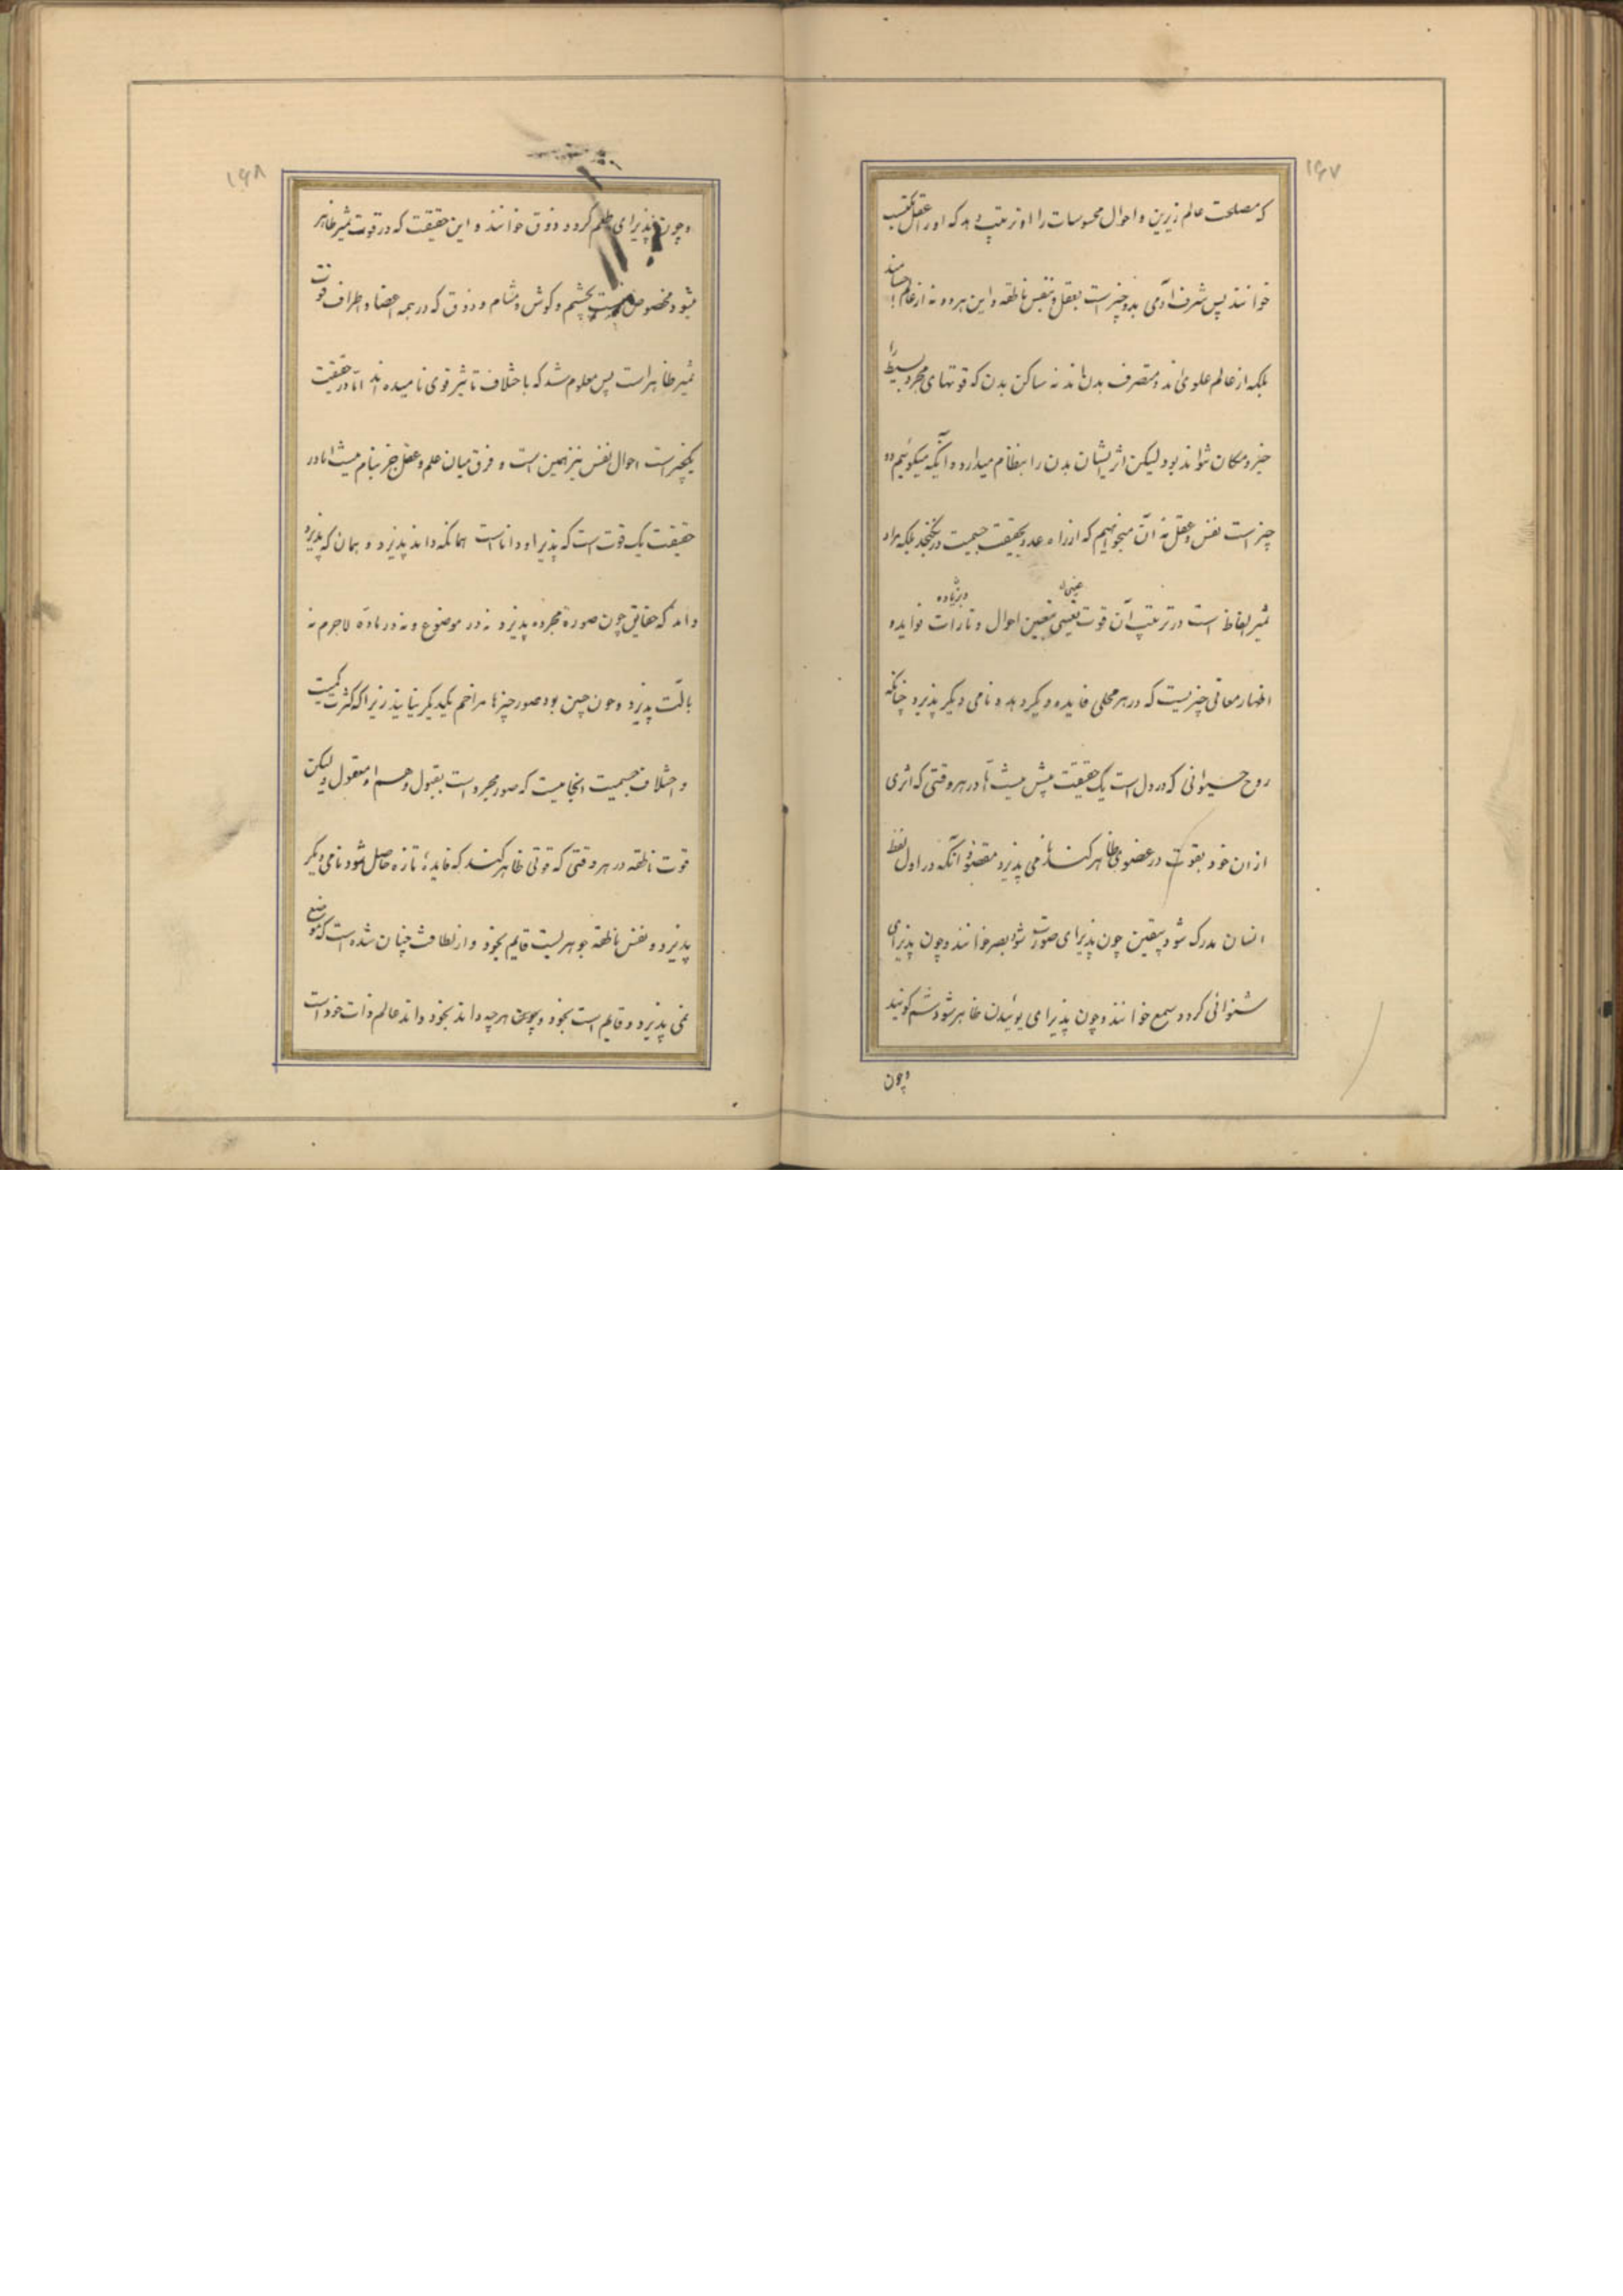 ۱۶۷
که مصلحت عالم زیرین و احوال محسوسات را او ترتیب دهد که او را عقل مکتسب
خوانند پس شرف آدمی بدو چیز است بعقل و نفس ناطقه و این هر دو نه از عالم اجسامند
بلکه از عالم علوی‌اند و متصرف بدن‌اند نه ساکن بدن که قوتهای مجرد بسیط را
حیز و مکان نتواند بود لیکن اثر ایشان بدن را بنظام میدارد و آنکه میگوئیم دو
چیز است نفس و عقل نه آن میخواهیم که از راه عدد بحقیقت جسمیت در گنجد بلکه مراد
تمیز الفاظ است در ترتیب آن قوت تعیین احوال و تارات فوایده
اظهار معانی چیزیست که در هر محلی فایده دیگر دهد و نامی دیگر پذیرد چنانکه
روح حیوانی که در دل است یک حقیقت بیش نیست اما در هر وقتی که اثری
از ان خود بقوت در عضوی ظاهر کند نامی پذیرد مقصود آنکه در اول لفظ
انسان مدرک شود بیقین چون پذیرای صورت شود بصر خوانند و چون پذیرای
شنوائی گردد سمع خوانند و چون پذیرای بوئیدن ظاهر شود شم گویند
و چون
۱۶۸
و چون پذیرای طعم گردد ذوق خوانند و این حقیقت که در قوت تمیز ظاهر
شود مخصوص نیست بچشم و گوش و مشام و ذوق که در همه اعضا و اطراف قوت
تمیز ظاهر است پس معلوم شد که باختلاف تاثیر قوی نامیده اند اما در حقیقت
یکچیز است احوال نفس نیز همین است و فرق میان علم و عقل جز بنام نیست اما در
حقیقت یک قوت است که پذیرا و داناست همانکه داند پذیرد و همان که پذیرد
داند که حقایق چون صورة مجرده پذیرد نه در موضوع و نه در ماده لاجرم نه
بآلت پذیرد و چون چنین بود صور چیزها مزاحم یکدیگر نیایند زیرا که کثرت کمیت
و اختلاف جسمیت اینجا نیست که صور مجرد است بقبول وهم او معقول ولیکن
قوت ناطقه در هر وقتی که قوتی ظاهر کند که فایدهٔ تازه حاصل شود نامی دیگر
پذیرد و نفس ناطقه جوهریست قایم بخود و از لطافت چنان شده است که موضع
نمی پذیرد و قایم است بخود و چون هر چه داند بخود داند عالم ذات خود است